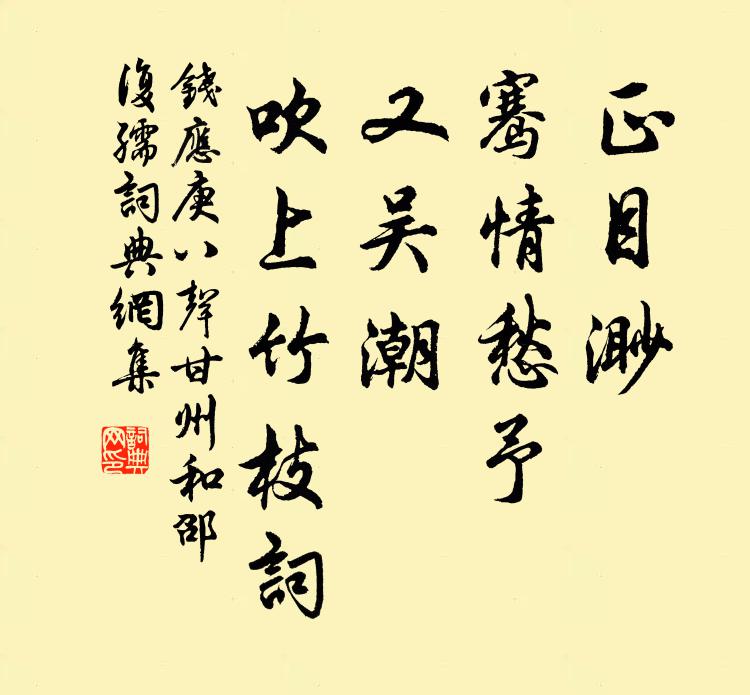 正目渺
騫情愁予
又吴潮
吹上竹枝詞
錢應庚八聲甘州和邵
復孺詞典網集
詞典网印